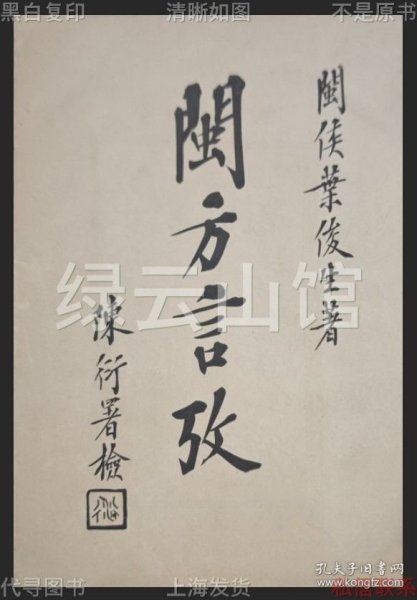 黑白复印
清晰如图
不是原书
閩侯葉俊生著
閩方言攷
陳衍署檢
衍
绿云山馆
代寻图书
上海发货
私信联系
孔夫子旧书网
www.kongfz.com